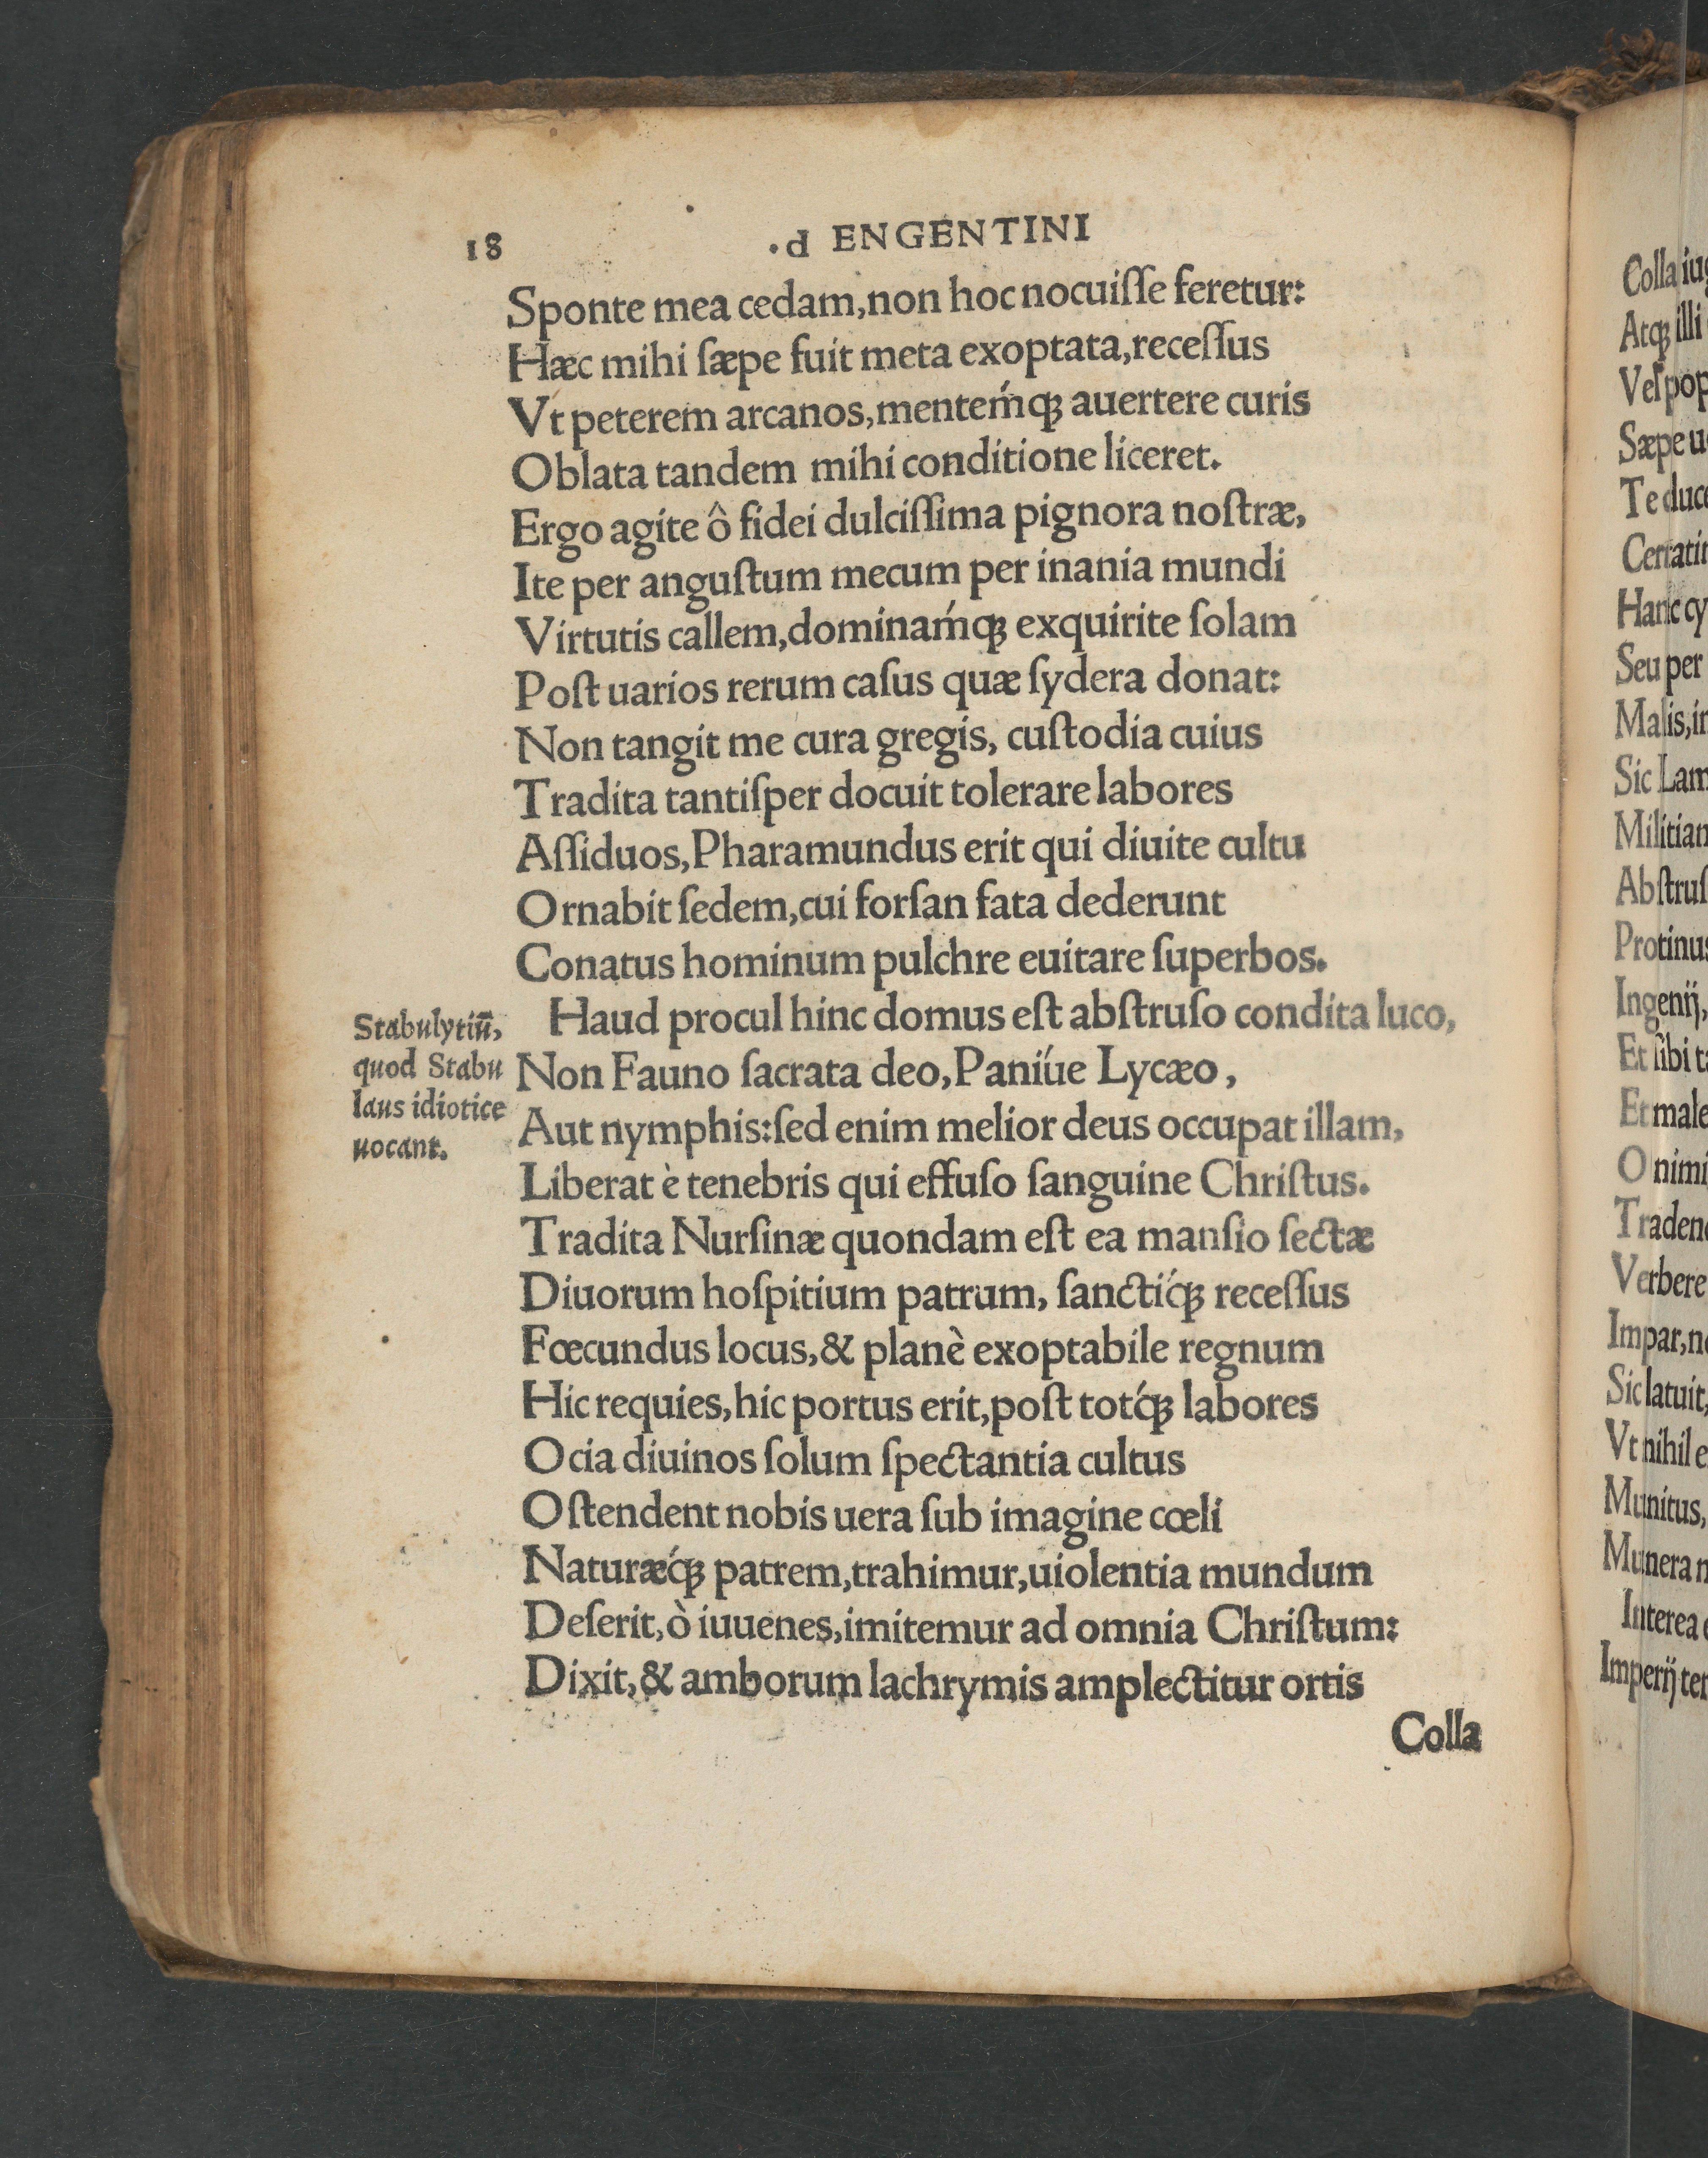 18 .d ENGENTINI
Sponte mea cedam,non hoc nocuiſſe feretur:
Hæc mihi ſæpe fuit meta exoptata,receſſus
Vt peterem arcanos,menteḿq; auertere curis
Oblata tandem mihi conditione liceret.
Ergo agite ô fidei dulciſſima pignora noſtræ,
Ite per anguſtum mecum per inania mundi
Virtutis callem,dominaḿq; exquirite ſolam
Poſt uarios rerum caſus quæ ſydera donat:
Non tangit me cura gregis, cuſtodia cuius
Tradita tantiſper docuit tolerare labores
Aſſiduos,Pharamundus erit qui diuite cultu
Ornabit ſedem,cui forſan fata dederunt
Conatus hominum pulchre euitare ſuperbos.
Haud procul hinc domus eſt abſtruſo condita luco,
Non Fauno ſacrata deo,Paniúe Lycæo,
Aut nymphis:ſed enim melior deus occupat illam,
Liberat è tenebris qui effuſo ſanguine Chriſtus.
Tradita Nurſinæ quondam eſt ea manſio ſectæ
Diuorum hoſpitium patrum, ſanctiq́; receſſus
Fœcundus locus,& planè exoptabile regnum
Hic requies,hic portus erit,poſt totq́; labores
Ocia diuinos ſolum ſpectantia cultus
Oſtendent nobis uera ſub imagine cœli
Naturæq́; patrem,trahimur,uiolentia mundum
Deſerit,ò iuuenes,imitemur ad omnia Chriſtum:
Dixit,& amborum lachrymis amplectitur ortis
Colla
Stabulytiū,
quod Stabu
laus idiotice
uocant.
Colla
Atq; illi
Sæpe
Te
Seu per
Malis,
Sic
Et ſibi
Et male
O
Impar,
Sic latuit,
Vt nihil
Munitus,
Munera
Interea
Imperij